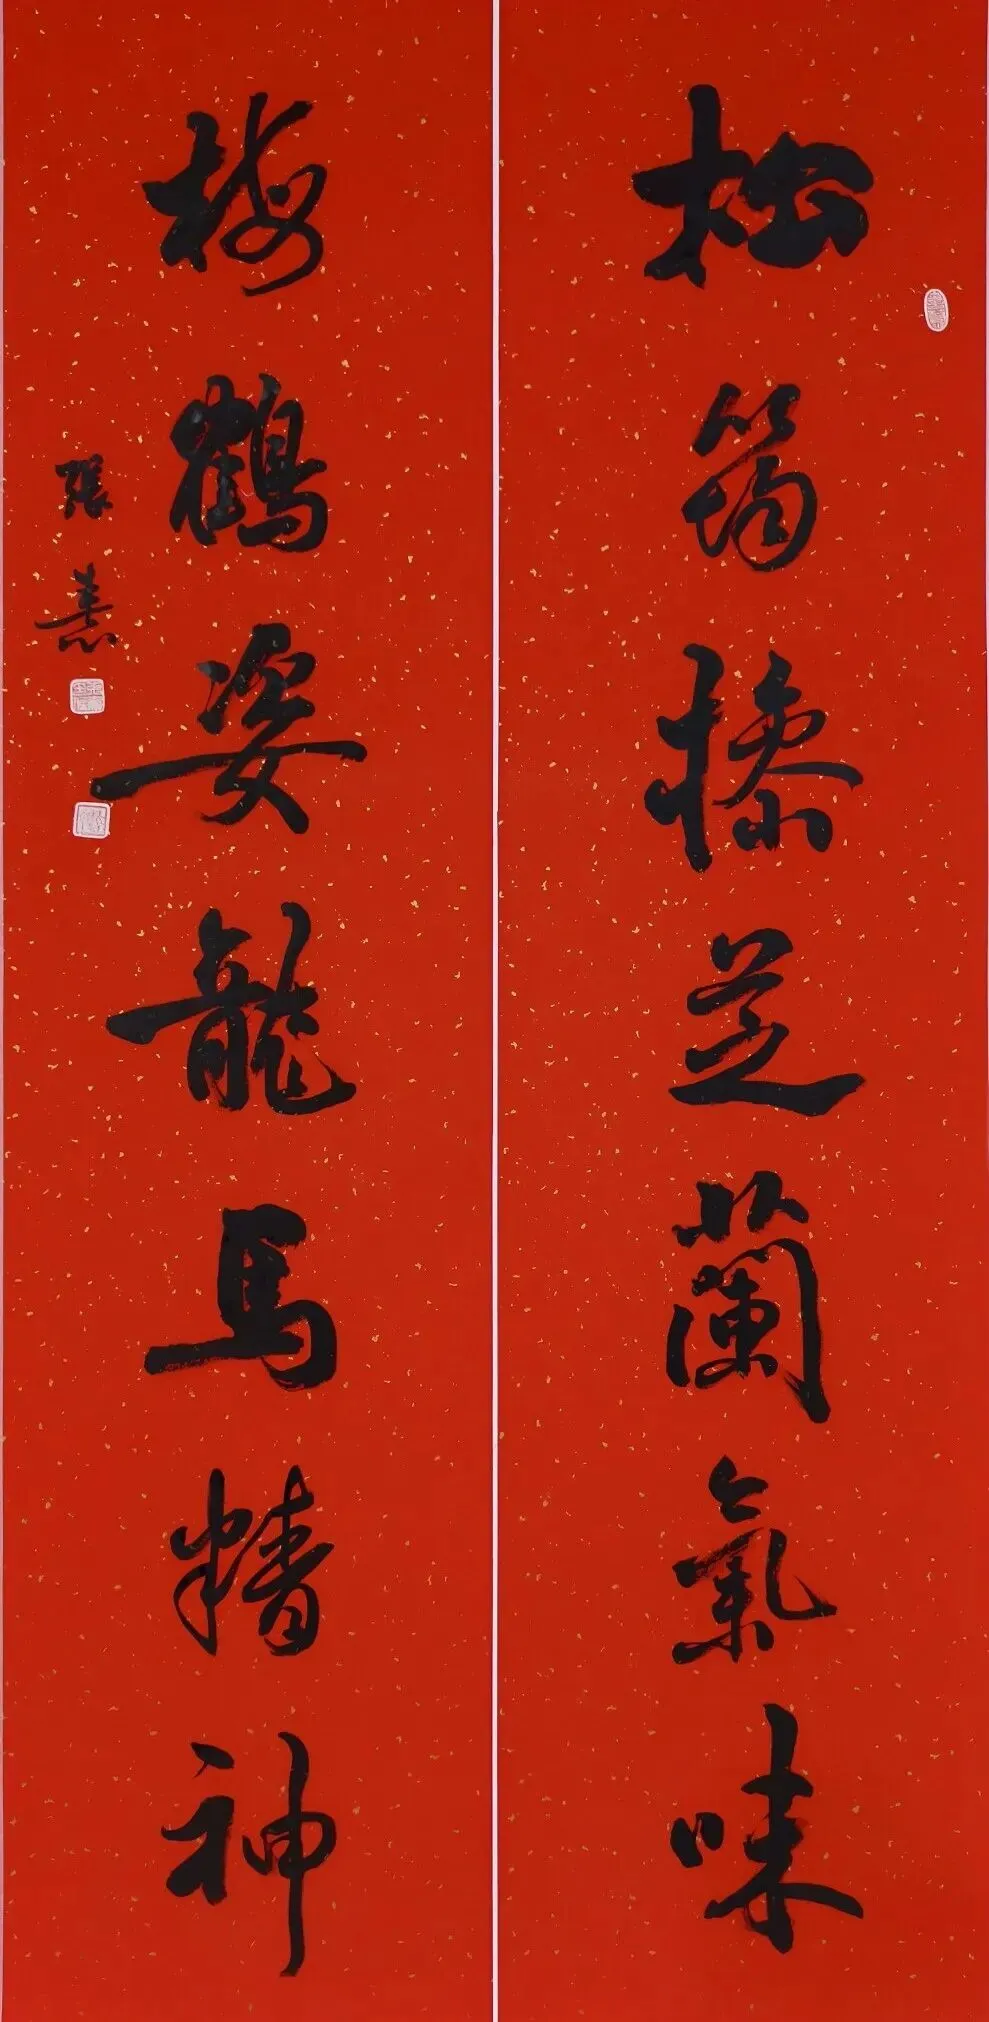 松筠操芝蘭氣味
梅鶴姿龍馬精神
張